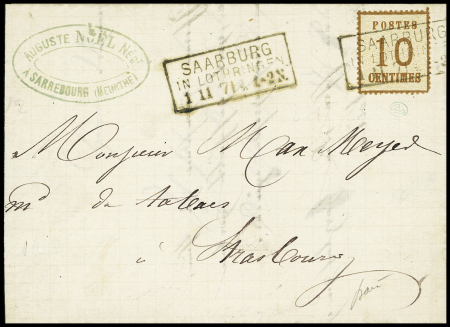 AUGUSTE NOËL Négt
A SARREBOURG (MEURTHE)
SAARBURG
IN LOTHRINGEN
1 11 71 1-2N.
POSTES
10
CENTIMES
SAARBURG
IN LOTHRINGEN
Monsieur Max Meyer
md de tabacs
à
Strasbourg